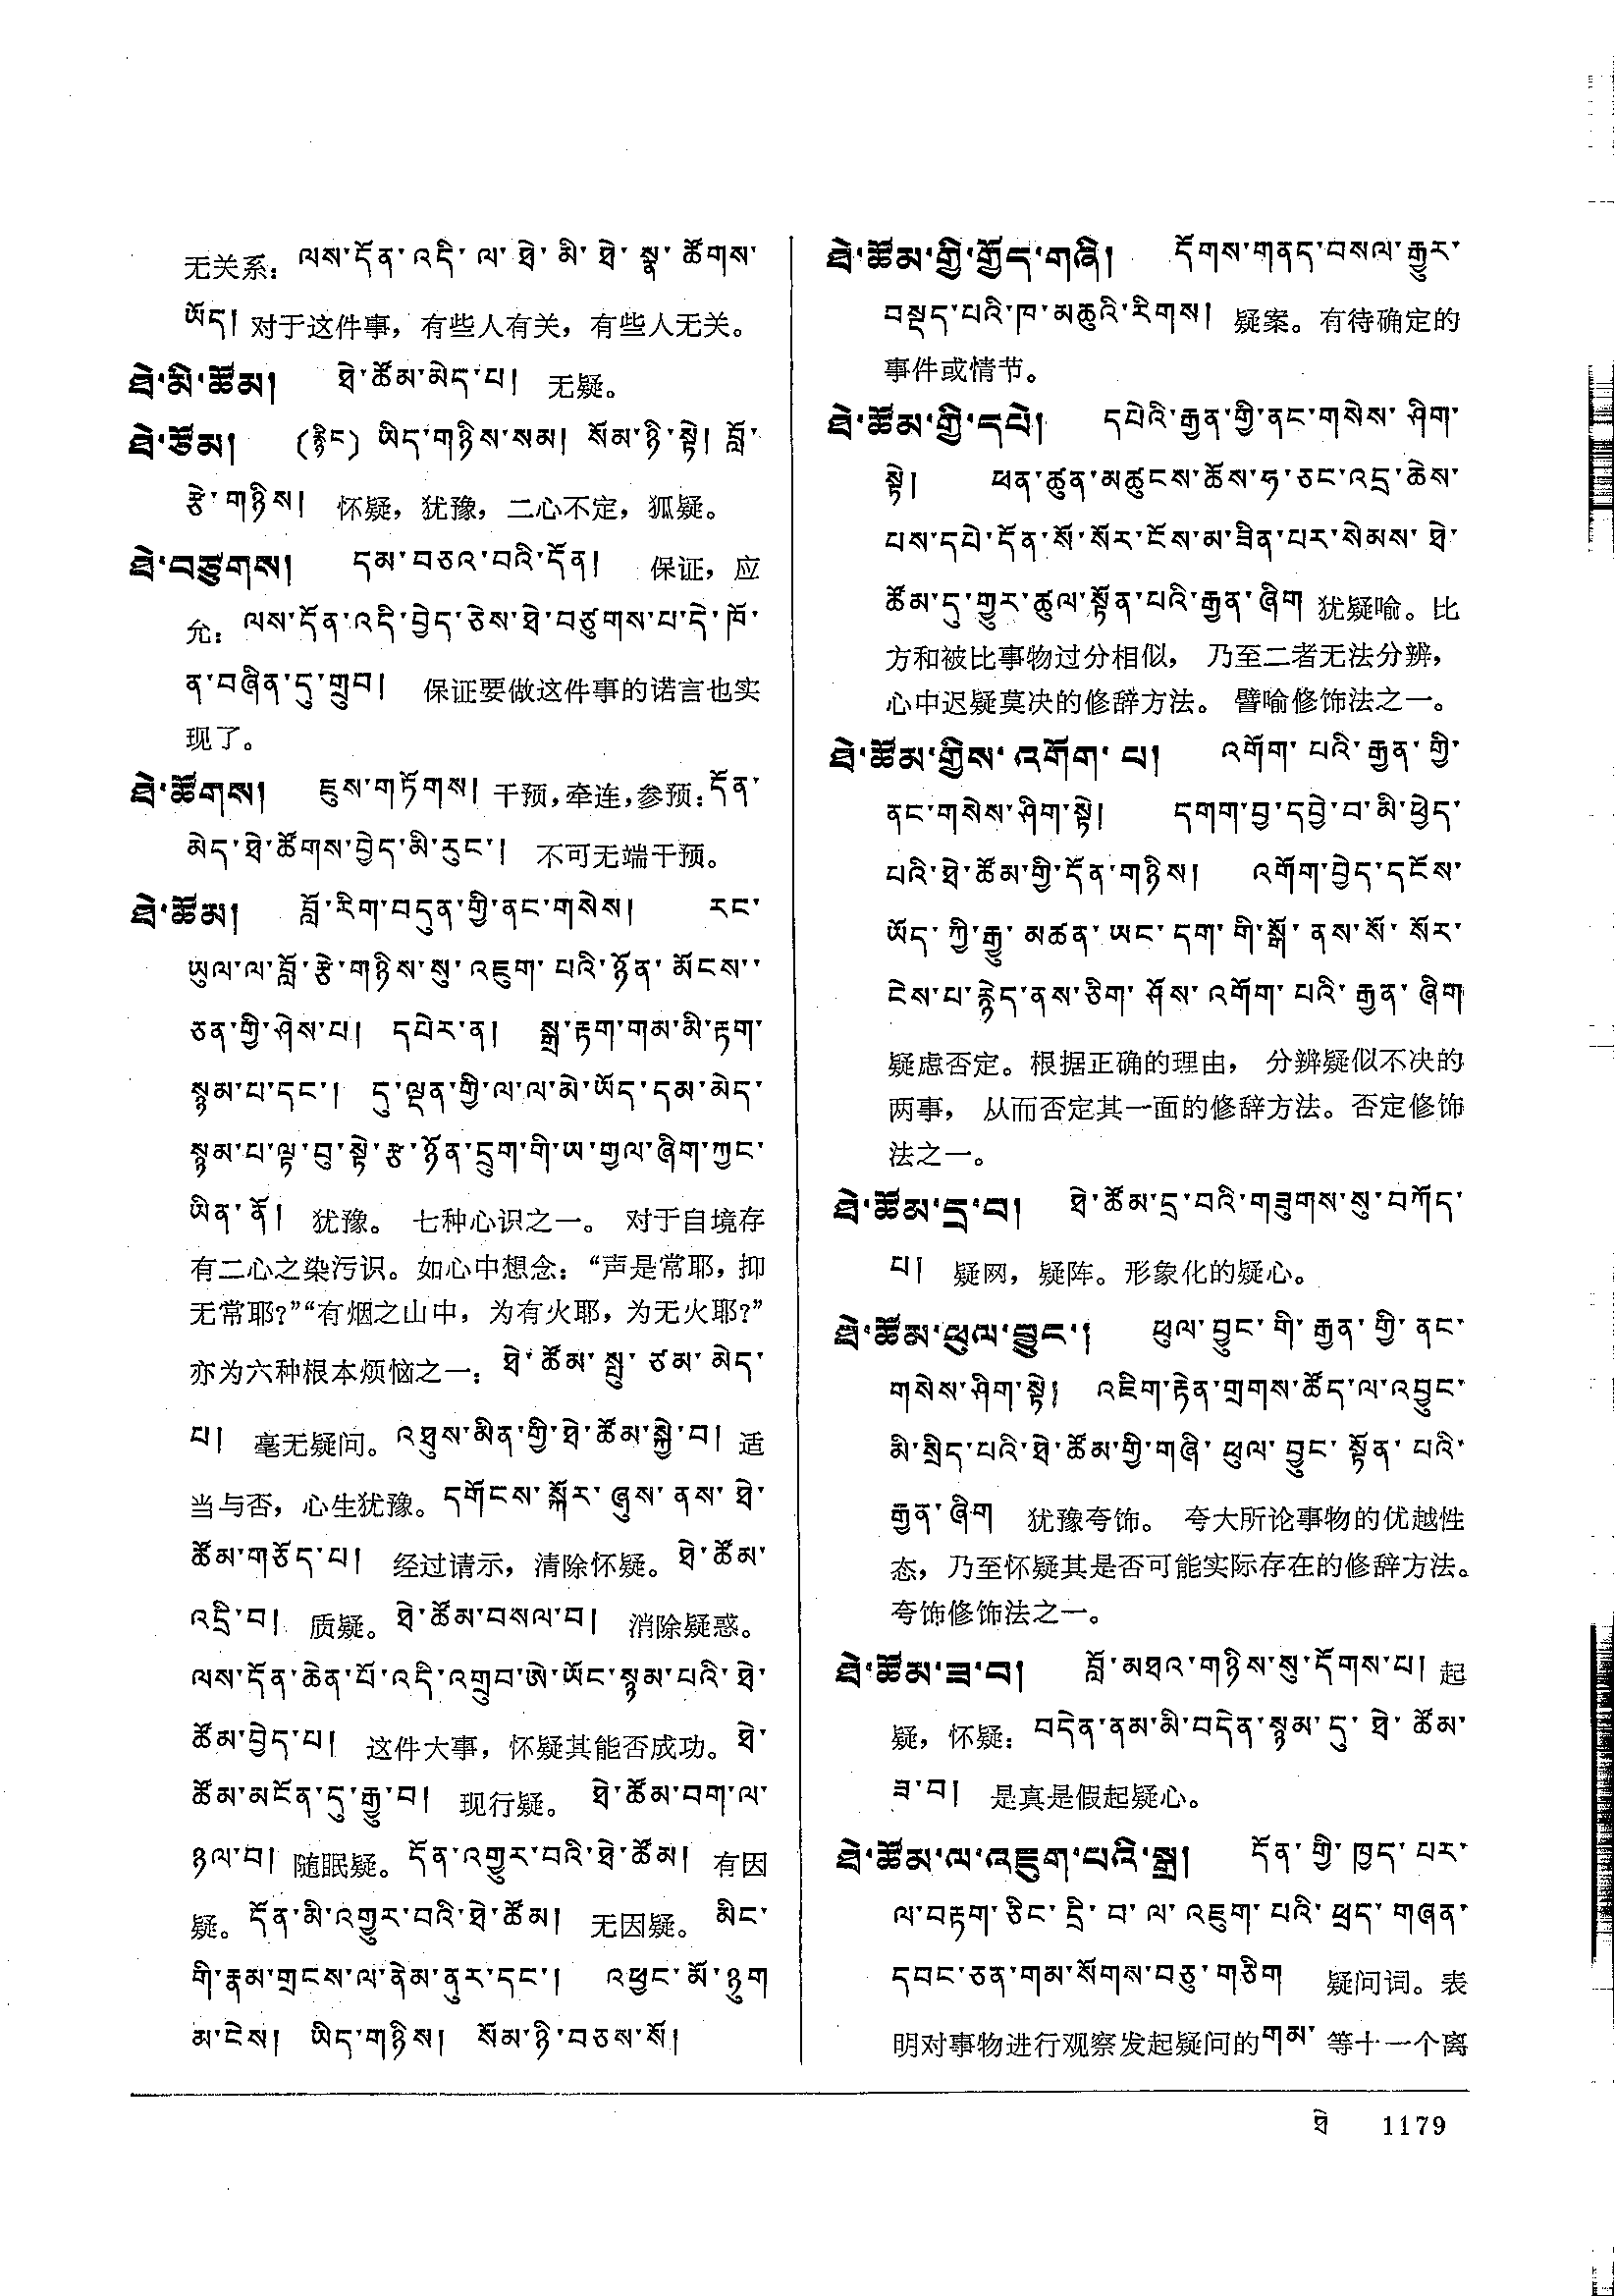 无关系：ལས་དོན་འདི་ལ་ཐེ་མི་ཐེ་སྣ་ཚོགས་
ཡོད། 对于这件事，有些人有关，有些人无关。
ཐེ་མི་ཚོམ། ཐེ་ཚོམ་མེད་པ། 无疑。
ཐེ་ཙོམ། (རྙིང) ཡིད་གཉིས་སམ། སོམ་ཉི་སྟེ། བློ་
རྩེ་གཉིས། 怀疑，犹豫，二心不定，狐疑。
ཐེ་བཙུགས། དམ་བཅའ་བའི་དོན། 保证，应
允：ལས་དོན་འདི་བྱེད་ཅེས་ཐེ་བཙུགས་པ་དེ་ཁོ་
ན་བཞིན་དུ་གྲུབ། 保证要做这件事的诺言也实
现了。
ཐེ་ཚོགས། ཇུས་གཏོགས། 干预，牵连，参预：དོན་
མེད་ཐེ་ཚོགས་བྱེད་མི་རུང་། 不可无端干预。
ཐེ་ཚོམ། བློ་རིག་བདུན་གྱི་ནང་གསེས། རང་
ཡུལ་ལ་བློ་རྩེ་གཉིས་སུ་འཇུག་པའི་ཉོན་མོངས་
ཅན་གྱི་ཤེས་པ། དཔེར་ན། སྒྲ་རྟག་གམ་མི་རྟག་
སྙམ་པ་དང་། དུ་ལྡན་གྱི་ལ་ལ་མེ་ཡོད་དམ་མེད་
སྙམ་པ་ལྟ་བུ་སྟེ་རྩ་ཉོན་དྲུག་གི་ཡ་གྱལ་ཞིག་ཀྱང་
ཡིན་ནོ། 犹豫。 七种心识之一。 对于自境存
有二心之染污识。如心中想念：“声是常耶，抑
无常耶？”“有烟之山中，为有火耶，为无火耶？”
亦为六种根本烦恼之一：ཐེ་ཚོམ་སྤུ་ཙམ་མེད་
པ། 毫无疑问。འཐུས་མིན་གྱི་ཐེ་ཚོམ་སྐྱེ་བ། 适
当与否，心生犹豫。དགོངས་སྐོར་ཞུས་ནས་ཐེ་
ཚོམ་གཅོད་པ། 经过请示，清除怀疑。ཐེ་ཚོམ་
འདྲི་བ། 质疑。ཐེ་ཚོམ་བསལ་བ། 消除疑惑。
ལས་དོན་ཆེན་པོ་འདི་འགྲུབ་ཨེ་ཡོང་སྙམ་པའི་ཐེ་
ཚོམ་བྱེད་པ། 这件大事，怀疑其能否成功。ཐེ་
ཚོམ་མངོན་དུ་རྒྱུ་བ། 现行疑。 ཐེ་ཚོམ་བག་ལ་
ཉལ་བ། 随眠疑。དོན་འགྱུར་བའི་ཐེ་ཚོམ། 有因
疑。དོན་མི་འགྱུར་བའི་ཐེ་ཚོམ། 无因疑。 མིང་
གི་རྣམ་གྲངས་ལ་ནེམ་ནུར་དང་། འཕྱང་མོ་ཉུག
མ་ངེས། ཡིད་གཉིས། སོམ་ཉི་བཅས་སོ།
ཐེ་ཚོམ་གྱི་གྱོད་གཞི། དོགས་གནད་བསལ་རྒྱུར་
བསྡད་པའི་ཁ་མཆུའི་རིགས། 疑案。有待确定的
事件或情节。
ཐེ་ཚོམ་གྱི་དཔེ། དཔེའི་རྒྱན་གྱི་ནང་གསེས་ཤིག་
སྟེ། ཕན་ཚུན་མཚུངས་ཆོས་ཧ་ཅང་འདྲ་ཆེས་
པས་དཔེ་དོན་སོ་སོར་ངོས་མ་ཟིན་པར་སེམས་ཐེ་
ཚོམ་དུ་གྱུར་ཚུལ་སྟོན་པའི་རྒྱན་ཞིག 犹疑喻。比
方和被比事物过分相似， 乃至二者无法分辨，
心中迟疑莫决的修辞方法。 譬喻修饰法之一。
ཐེ་ཚོམ་གྱིས་འགོག་པ། འགོག་པའི་རྒྱན་གྱི་
ནང་གསེས་ཤིག་སྟེ། དགག་བྱ་དབྱེ་བ་མི་ཕྱེད་
པའི་ཐེ་ཚོམ་གྱི་དོན་གཉིས། འགོག་བྱེད་དངོས་
ཡོད་ཀྱི་རྒྱུ་མཚན་ཡང་དག་གི་སྒོ་ནས་སོ་སོར་
ངེས་པ་རྙེད་ནས་ཅིག་ཤོས་འགོག་པའི་རྒྱན་ཞིག
疑虑否定。根据正确的理由， 分辨疑似不决的
两事， 从而否定其一面的修辞方法。否定修饰
法之一。
ཐེ་ཚོམ་དྲ་བ། ཐེ་ཚོམ་དྲ་བའི་གཟུགས་སུ་བཀོད་
པ། 疑网，疑阵。形象化的疑心。
ཐེ་ཚོམ་ཕུལ་བྱུང་། ཕུལ་བྱུང་གི་རྒྱན་གྱི་ནང་
གསེས་ཤིག་སྟེ། འཇིག་རྟེན་གྲགས་ཚོད་ལ་འབྱུང་
མི་སྲིད་པའི་ཐེ་ཚོམ་གྱི་གཞི་ཕུལ་བྱུང་སྟོན་པའི་
རྒྱན་ཞིག 犹豫夸饰。 夸大所论事物的优越性
态，乃至怀疑其是否可能实际存在的修辞方法。
夸饰修饰法之一。
ཐེ་ཚོམ་ཟ་བ། བློ་མཐའ་གཉིས་སུ་དོགས་པ། 起
疑，怀疑：བདེན་ནམ་མི་བདེན་སྙམ་དུ་ཐེ་ཚོམ་
ཟ་བ། 是真是假起疑心。
ཐེ་ཚོམ་ལ་འཇུག་པའི་སྒྲ། དོན་གྱི་ཁྱད་པར་
ལ་བརྟག་ཅིང་དྲི་བ་ལ་འཇུག་པའི་ཕྲད་གཞན་
དབང་ཅན་གམ་སོགས་བཅུ་གཅིག 疑问词。表
明对事物进行观察发起疑问的གམ་ 等十一个离
ཐེ 1179